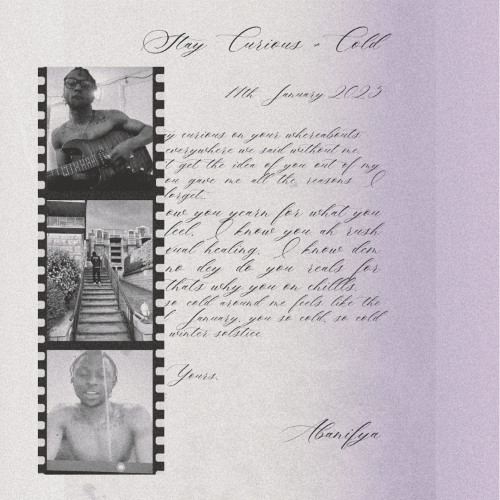 Stay Curious - Cold
11th January 2023
y curious on your whereabouts
everywhere we said without me.
t get the idea of you out of my
ou gave me all the reasons I
forget.
ow you yearn for what you
feel. I know you ah rush
xual healing. I know dem
no dey do you reals for
thats why you on chills.
so cold around me feels like the
f January, you so cold, so cold
winter solstice
Yours,
Abanifya